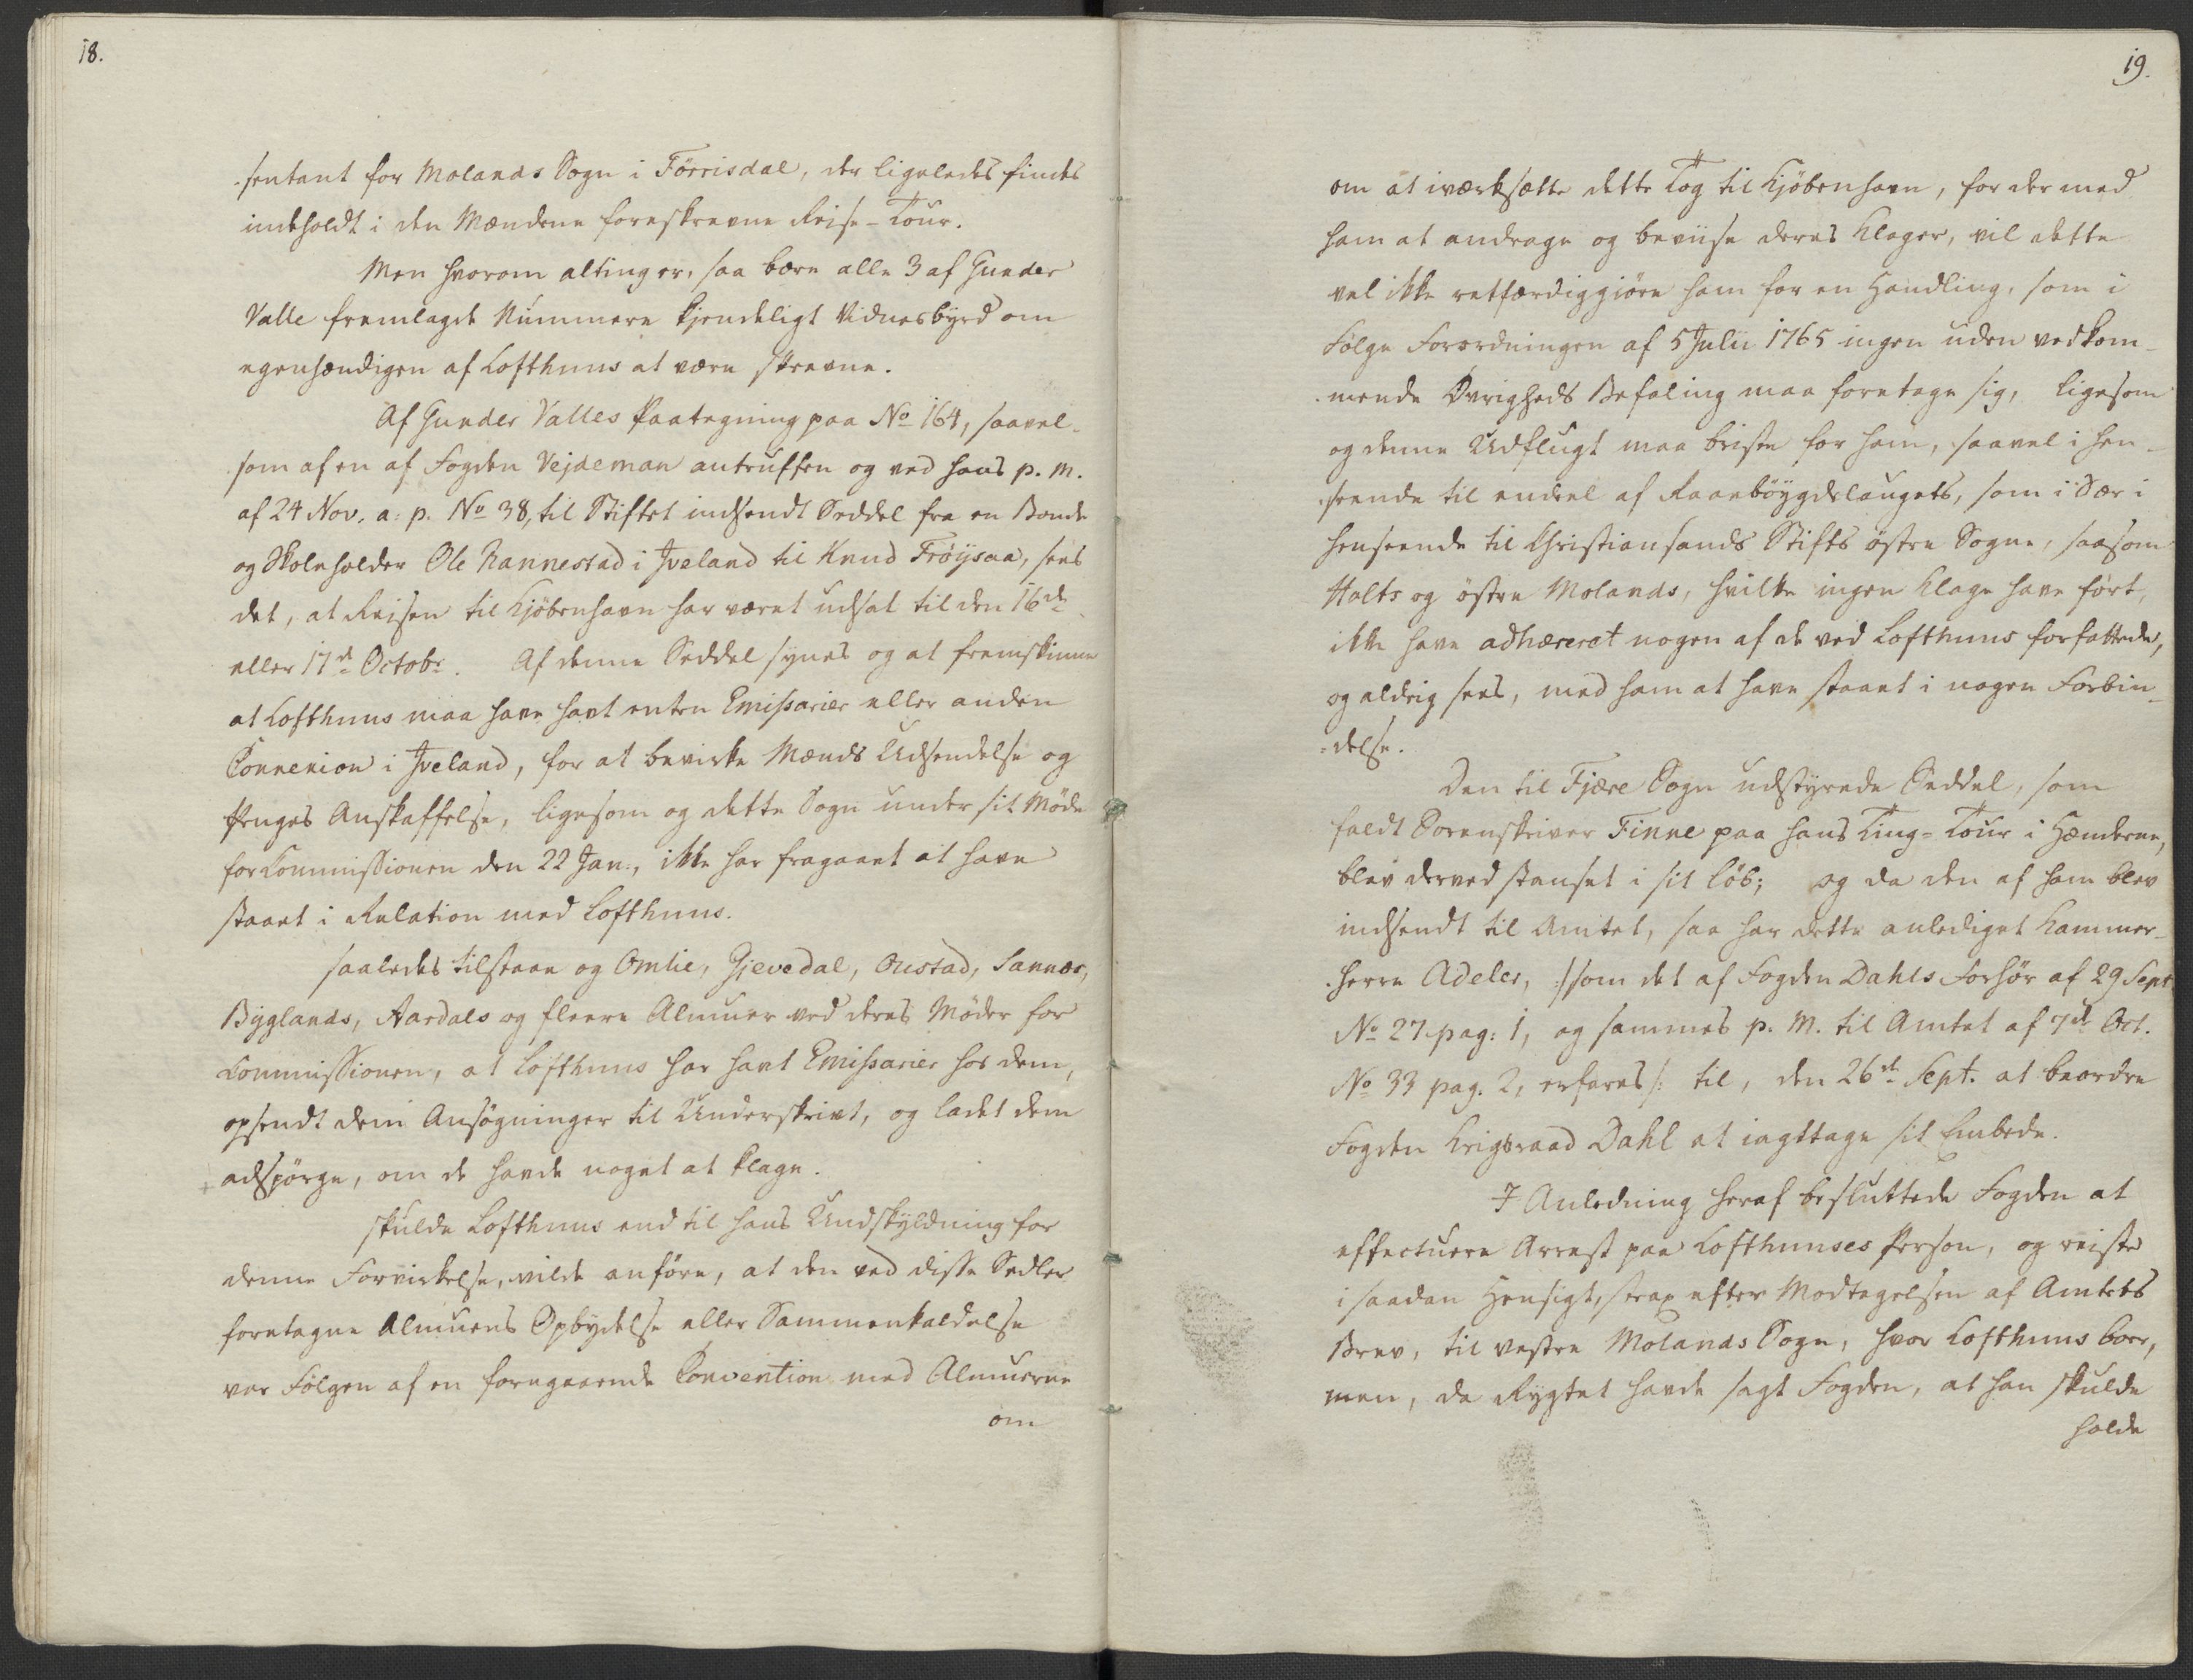 18.
sentant for Molands Sogn i Förrisdal, der ligeledes findes
indeholdt i den Mændene foreskrevne Reise-Tour.
Men hvorom alting er, saa bære alle 3 af Gunder
Valle fremlagde Nummere kjendeligt Vidnesbyrd om
egenhændigen af Lofthuus at være skrevne.
Af Gunder Valles Paategning paa No 164, saavel-
som af en af Fogden Vejdeman antruffen og ved hans p. M.
af 24 Nov. a: p. No 38, til Stiftet indsendt Seddel fra en Bonde
og Skoleholder Ole Rannestad i Iveland til Knud Fröysaa, sees
det, at Reisen til Kjöbenhavn har været udsat til den 16de
eller 17d Octobr. Af denne Seddel synes og at fremskinne
at Lofthuus maa have havt enten Emissarier eller anden
Connexion i Iveland, for at bevirke Mænds Udsendelse og
Penges Anskaffelse, ligesom og dette Sogn under sit Möde
for Commissionen den 22 Jan., ikke har fragaaet at have
staaet i Relation med Lofthuus.
saaledes tilstaae og Omlie, Gjevedal, Oustad, Sannes,
Byglands, Aardals og fleere Almuer ved deres Möder for
Commissionen, at Lofthuus har havt Emissarier hos dem,
opsendt dem Ansögninger til Underskrivt, og ladet dem
adspörge, om de havde noget at klage.
skulde Lofthuus end til hans Undskyldning for
denne Forvirkelse, vilde anföre, at den ved disse Sedler
foretagne Almuens Opbydelse eller Sammenkaldelse
var Fölgen af en foregaaende Convention med Almuerne
om
19.
om at iværksætte dette Tog til Kjöbenhavn, for der med
ham at andrage og beviise deres Klager, vil dette
vel ikke retfærdiggiöre ham for en Handling, som i
Fölge Forordningen af 5 Julii 1765 ingen uden vedkom-
mende Övrigheds Befaling maa foretage sig, ligesom
og denne Udflugt maa briste for ham, saavel i hen-
seende til endeel af Raaböygdelaugets, som i Sær i
henseende til Christiansands Stifts östre Sogne, saasom
Holts og östre Molands, hvilke ingen Klage have fört,
ikke have adhæreret nogen af de ved Lofthuus forfattede,
og aldrig sees, med ham at have staaet i nogen Forbin-
delse.
Den til Fjære Sogn udstyrede Seddel, som
faldt Sorenskriver Finne paa hans Ting-Tour i Hænderne,
blev derved standset i sit Löb; og da den af ham blev
indsendt til Amtet, saa har dette anlediget Kammer-
herre Adeler, /: som det af Fogden Dahls Forhör af 29 Sept.
No 27. pag: 1, og sammes p. M. til Amtet af 7de Oct.
No 33 pag. 2, erfares :/ til, den 26de Sept. at beordre
Fogden Krigsraad Dahl at iagttage sit Embede.
I Anledning heraf besluttede Fogden at
effectuere Arrest paa Lofthuuses Person, og reiste
i saadan Hensigt, strax efter Modtagelsen af Amtets
Brev, til vestre Molands Sogn, hvor Lofthuus boer,
men, da Rygtet havde sagt Fogden, at han skulde
holde